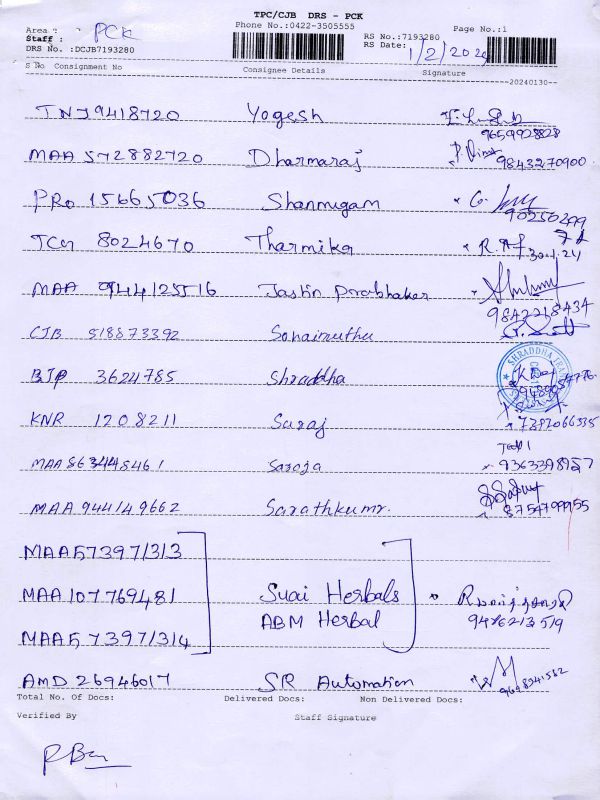 TPC/CJB DRS - PCK
Phone No.:0422-3505555
Page No.:1
Area : PCK
Staff :
RS No.:7193280
DRS No. :DCJB7193280
RS Date: 1/2/2024
S No Consignment No Consignee Details Signature
20240130
TNJ 9418720 Yogesh
9659928828
MAA 572882720 Dharmaraj
9843270900
PRO 15665036 Shanmugam
90250299
TCM 8024670 Tharmika
MAA 944125516 Jastin Prabhaker
9842218434
CJB 518873392 Sonaimuthu
BJP 3624785 Shraddha
KNR 1208211 Suraj
7397066335
MAA 563448461 Saroja
9363398957
MAA 944149662 Sarathkumr.
8754799955
MAA 573971313
MAA 107769481 Suai Herbals
ABM Herbal
9486213519
MAA 573971314
AMD 26946017 SR Automation
Total No. Of Docs: Delivered Docs: Non Delivered Docs:
Verified By Staff Signature